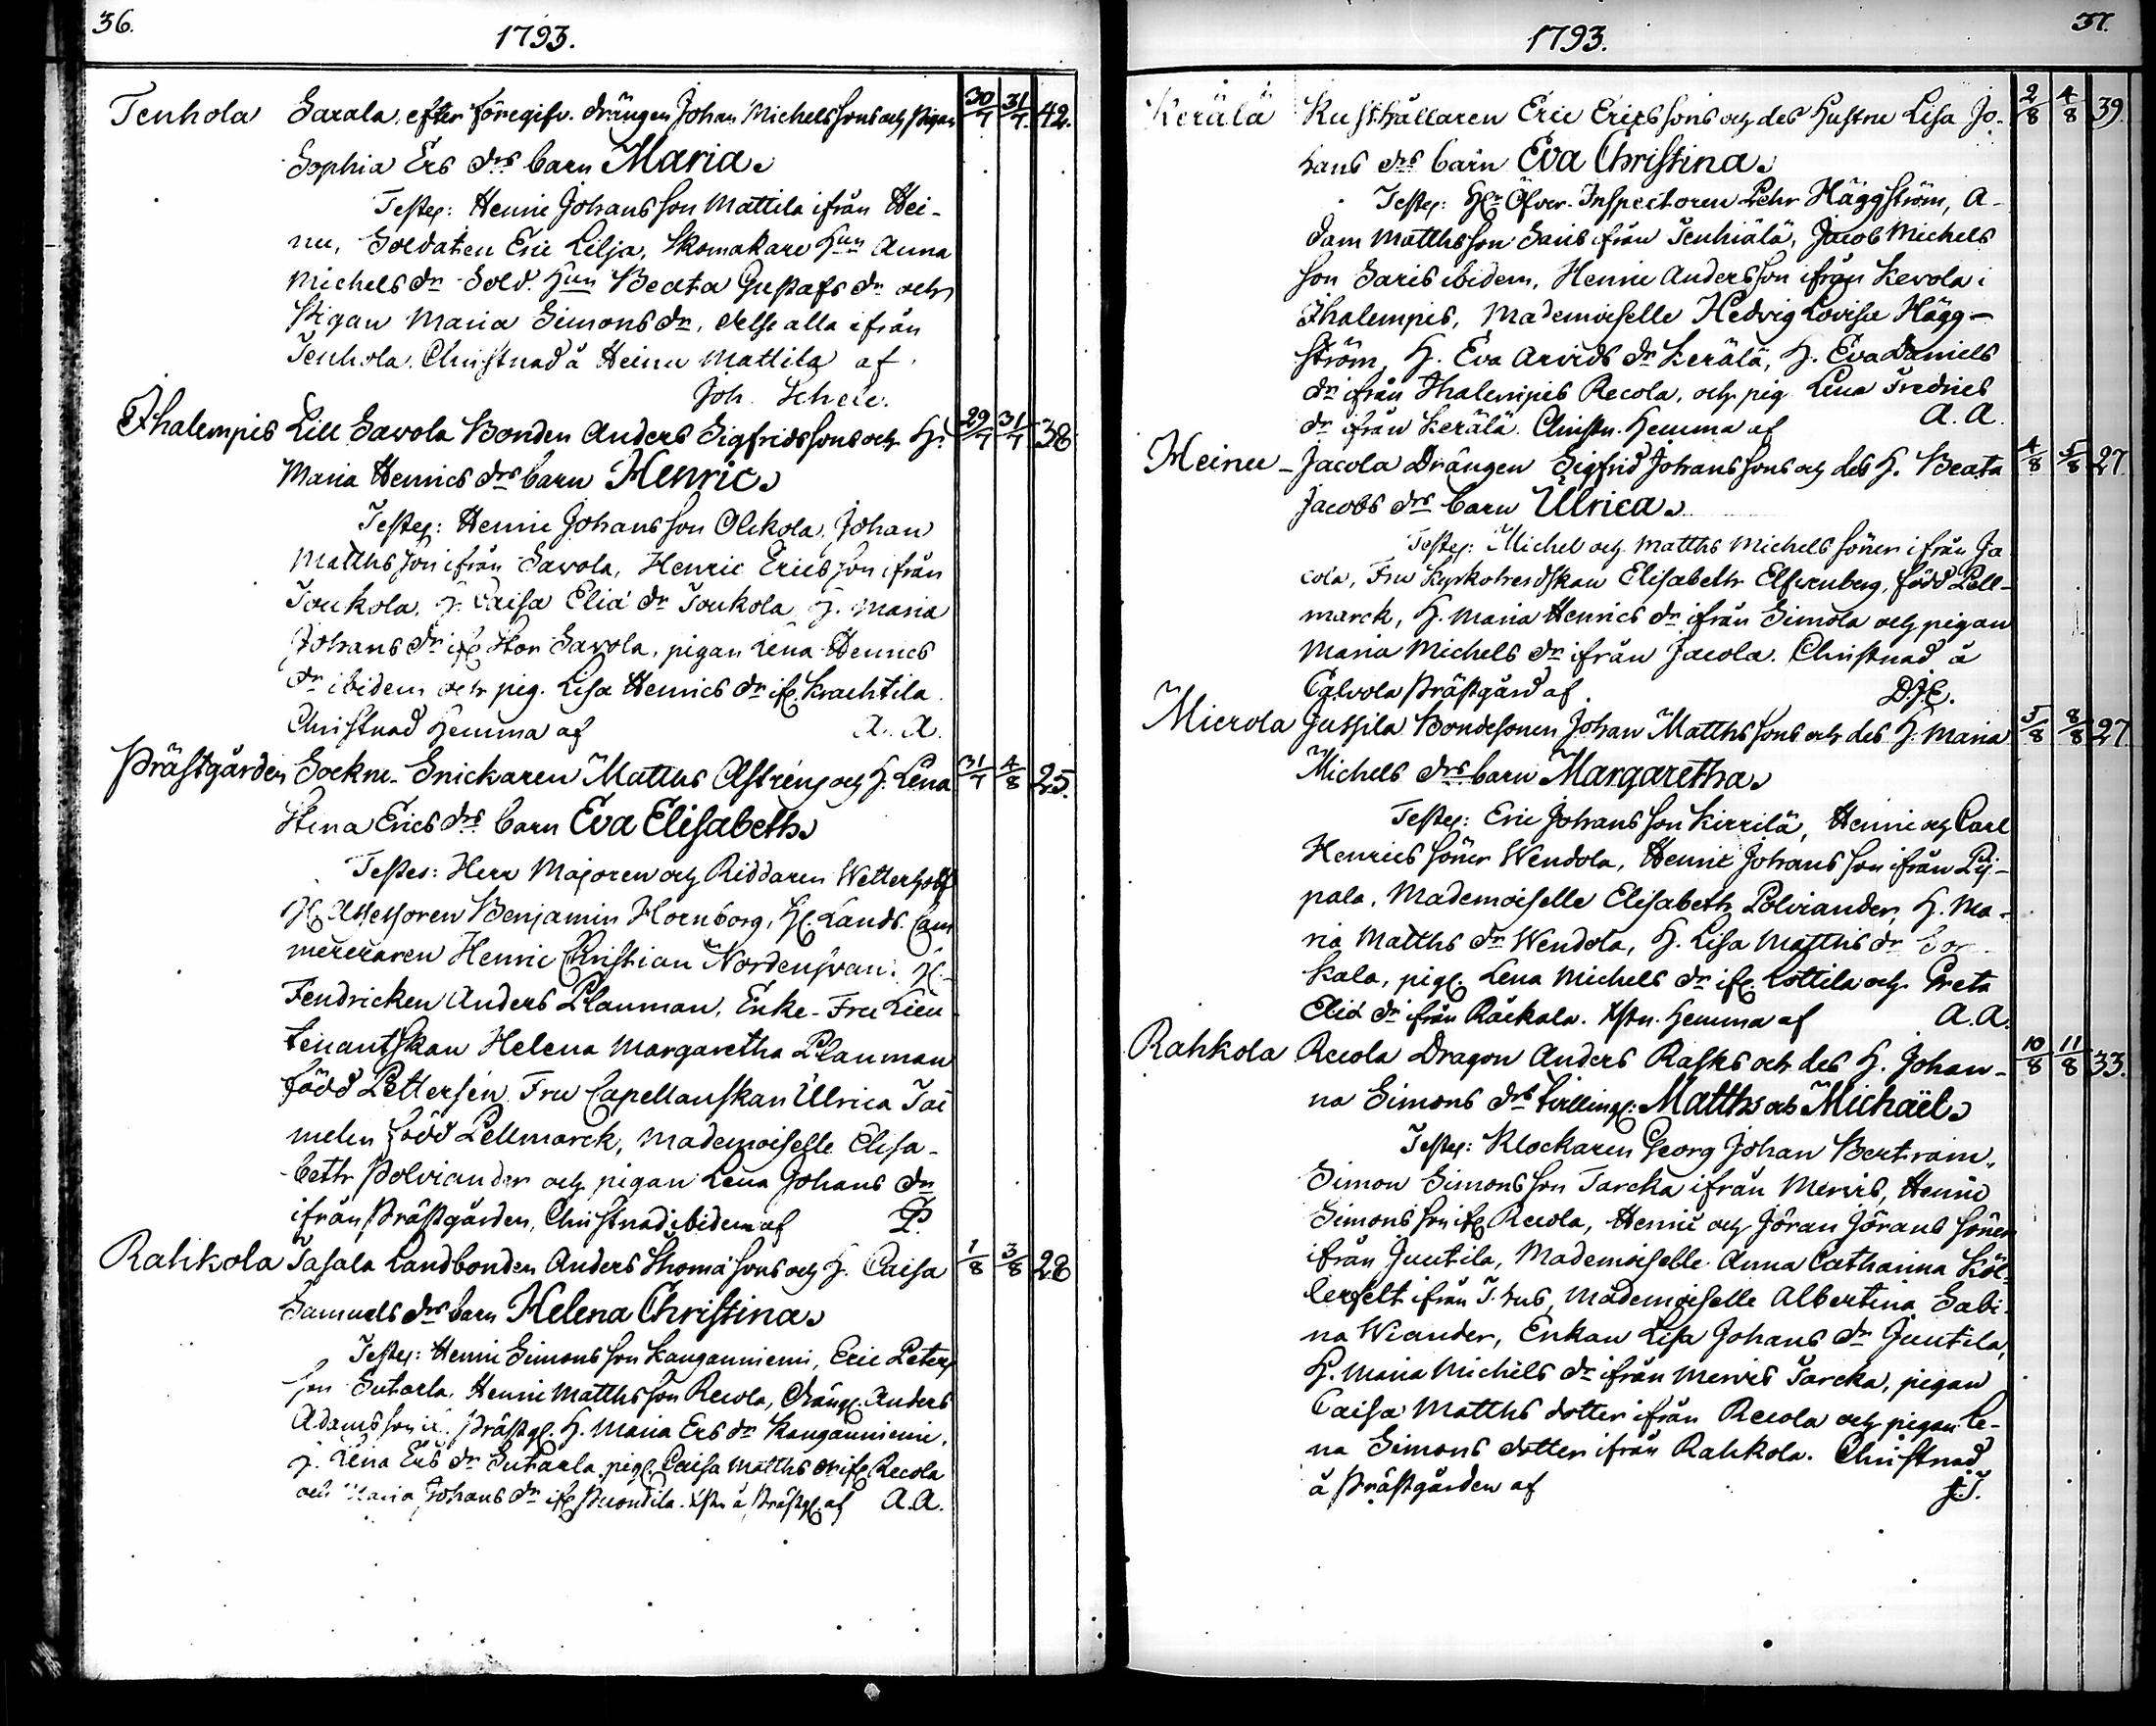 36.
1793.
Tenhola Saxala, efter föregifv. drängen Johan Michelssons och pigan 30/7 31/7 42.
Sophia Ers drs barn Maria.
Testes: Henric Johansson Mattila ifrån Hei-
nu, Soldaten Eric Lilja, Skomakare Hun Anna
Michels dr Sold. Hun Beata Gustafs dr och
Pigan Maria Simons dr, desse alla ifrån
Tenhola. Christnad å Heinu Mattila af
Joh. Schele.
Ihalempis Lill Savola Bonden Anders Sigfridssons och H. 29/7 31/7 38
Maria Henrics drs barn Henric.
Testes: Henric Johansson Ollikola, Johan
Matthsson ifrån Savola, Henric Ericsson ifrån
Joukola, H. Caisa Eliæ dr Joukola, H. Maria
Johans dr ifr. Stor Savola, pigan Lena Henrics
dr ibidem och pig. Lisa Henrics dr ifr. Krachtila
Christnad hemma af A. A.
Prästgården Sockne-Snickaren Matths Astrēns och H. Lena 31/7 4/8 25.
Stina Erics drs barn Eva Elisabeth.
Testes: Herr Majoren och Riddaren Wetterhoff
Hr. Assessoren Benjamin Hornborg, Hr. Lands Cam
mereraren Henric Christian Nordensvan, Hr.
Fendricken Anders Plauman, Enke-Fru Lieu
tenantskan Helena Margaretha Plauman
född Pettersén, Fru Capellanskan Ulrica Tai
melin född Pellmarck, Mademoiselle Elisa-
beth Polviander och pigan Lena Johans dr
ifrån Prästgården, Christnad ibidem af P.
Rahkola Tasala Landbonden Anders Thomæsons och H. Caisa 1/8 3/8 28
Samuels drs barn Helena Christina.
Testes: Henric Simonsson Kanganniemi, Eric Peters
son Sutarla, Henric Matthsson Recola, Dräng. Anders
Adamsson Prästg. H. Maria Ers dr Kanganniemi,
H. Lena Ers dr Sutarla, pig. Caisa Matths dr ifr. Recola
och Maria Johans dr ifr. Puondila. Xstn. å Prästg. af A.A.
1793.
37.
Kerälä Rusthållaren Eric Ericssons och des Hustru Lisa Jo- 2/8 4/8 39.
hans drs barn Eva Christina.
Testes: Hr Öfver-Inspectoren Pehr Häggström, A-
dam Matthsson Saris ifrån Tenhiälä, Jacob Michels
son Saris ibidem, Henric Andersson ifrån Kevola i
Ihalempis, Mademoiselle Hedvig Lovisa Hägg-
ström, H. Eva Arvids dr Kerälä, H. Eva Daniels
dr ifrån Ihalempis Recola, och pig. Lena Fredrics
dr ifrån Kerälä. Christn. hemma af A. A.
Heinu- Jacola Drängen Sigfrid Johanssons och des H. Beata 4/8 5/8 27
Jacobs drs barn Ulrica.
Testes: Michel och Matths Michels söner ifrån Ja
cola, Fru Kyrkoherdskan Elisabeth Elfvenberg, född Pell-
marck, H. Maria Henrics dr ifrån Simola och pigan
Maria Michels dr ifrån Jacola. Christnad å
Calvola Prästgård af D.J.E.
Mierola Jussila Bondesonen Johan Matthssons och des H. Maria 5/8 8/8 27
Michels drs barn Margaretha.
Testes: Eric Johansson Kirrilä, Henric och Carl
Henrics söner Wendola, Henric Johansson ifrån Pij-
pala, Mademoiselle Elisabeth Polviander, H. Ma-
ria Matths dr Wendola, H. Lisa Matths dr
kala, pig. Lena Michels dr ifr. Cottila och Greta
Eliæ dr ifrån Räckala. Xstn. hemma af A.A.
Rahkola Recola Dragon Anders Rasks och des H. Johan- 10/8 11/8 33.
na Simons drs tvillingr: Matths och Michaël.
Testes: Klockaren Georg Johan Bertram,
Simon Simonsson Tarcka ifrån Mervis, Henric
Simonsson ifr. Recola, Henric och Jöran Jörans söner
ifrån Juutila, Mademoiselle Anna Catharina Köl-
lerfelt ifrån T.hus, Mademoiselle Albertina Sabi-
na Wiander, Enkan Lisa Johans dr Juutila,
H. Maria Michels dr ifrån Mervis Tarcka, pigan
Caisa Matths dotter ifrån Recola och pigan Le-
na Simons dotter ifrån Rahkola. Christnad
å Prästgården af J.T.